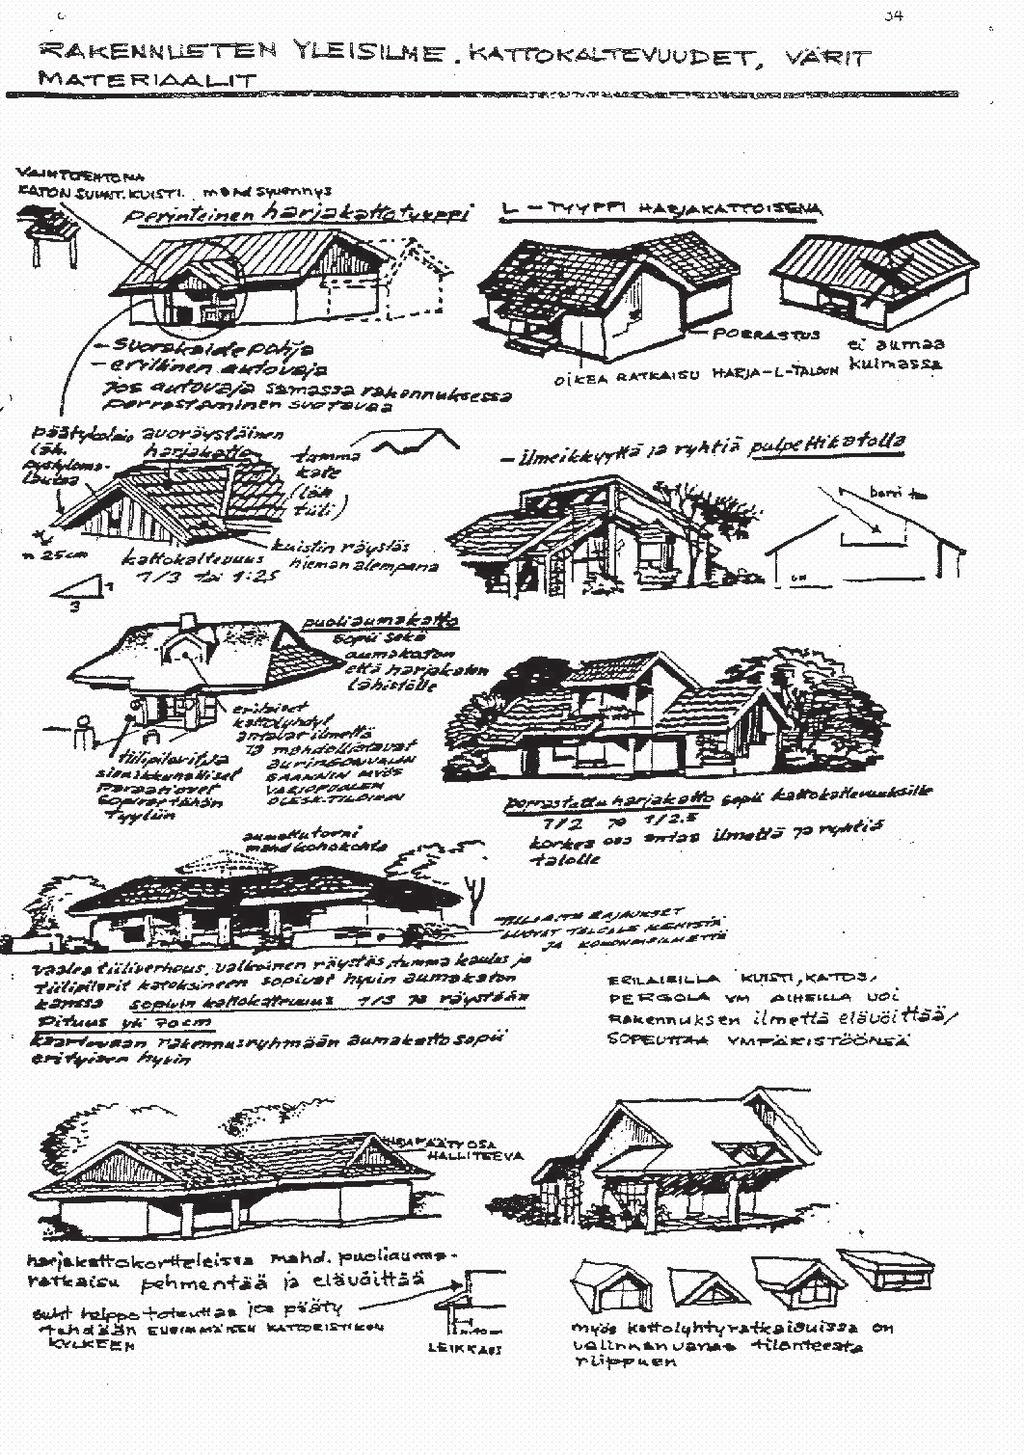 34
RAKENNUSTEN YLEISILME, KATTOKALTEVUUDET, VÄRIT
MATERIAALIT
VAIHTOEHTONA
KATON SUUNT. KUISTI. mahd syvennys
perinteinen harjakattotyyppi
L-TYYPPI HARJAKATTOISENA
- Suorakaide pohja
- erillinen autovaja
jos autovaja samassa rakennuksessa
porrastaminen suotavaa
PORRASTUS
OIKEA RATKAISU HARJA-L-TALOON
ei aumaa
kulmassa
päätykolmio
läh.
pystyloma-
lautaa
avoräystäinen
harjakatto
tumma
kate
(läh
tiili)
n. 25 cm
kattokaltevuus
1/3 tai 1:2.5
kuistin räystäs
hieman alempana
1
3
- ilmeikkyyttä ja ryhtiä pulpettikatolla
puoliaumakatto
sopii sekä
aumakaton
että harjakaton
lähistölle
erilaiset
kattolyhdyt
antavat ilmettä
ja mahdollistavat
auringonvalon
SAANNIN MYÖS
VARJOPUOLEN
OLESK.TILOIHIN
tiilipilarit ja
sopivat tähän
tyyliin
porrastettu harjakatto sopii kattokaltevuuksille
1/2 ja 1/2.5
korkea osa antaa ilmettä ja ryhtiä
talolle
aumattu torni
mahd kohokohta
TIILIAITA RAJAUKSET
LUOVAT TALOLLE KEHYSTÄ
JA KOKONAISILMETTÄ
vaalea tiiliverhous, valkoinen räystäs, tumma kaulus ja
tiilipilarit katoksineen sopivat hyvin aumakaton
kanssa sopivin kattokaltevuus 1/3 ja räystään
pituus yli 70 cm
kaartuvaan rakennusryhmään aumakatto sopii
erityisen hyvin
ERILAISILLA KUISTI, KATOS,
PERGOLA YM AIHEILLA VOI
RAKENNUKSEN ilmettä elävöittää/
SOPEUTTAA YMPÄRISTÖÖNSÄ
HARJAPÄÄTYOSA
HALLITSEVA
harjakattokortteleissa mahd. puoliauma-
ratkaisu pehmentää ja elävöittää
suht helppo toteuttaa jos pääty
tehdään ENSIMMÄISEN KATTORISTIKON
KYLKEEN
LEIKKAUS
myös kattolyhtyratkaisuissa on
valinnanvaraa tilanteesta
riippuen